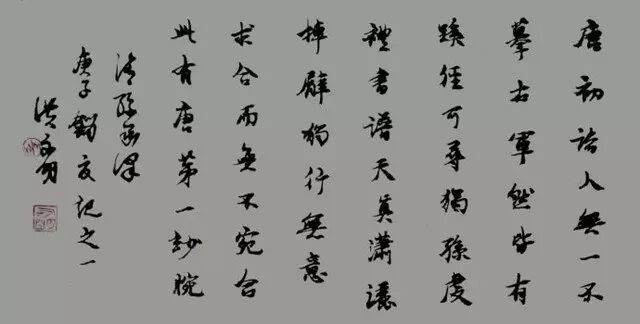 唐初諸人無一不
摹右軍然皆有
蹊徑可尋獨孫虔
禮書譜天真瀟灑
掉臂獨行無意
求合而無不宛合
此有唐第一妙腕
清孫承澤
庚子銷夏記之一